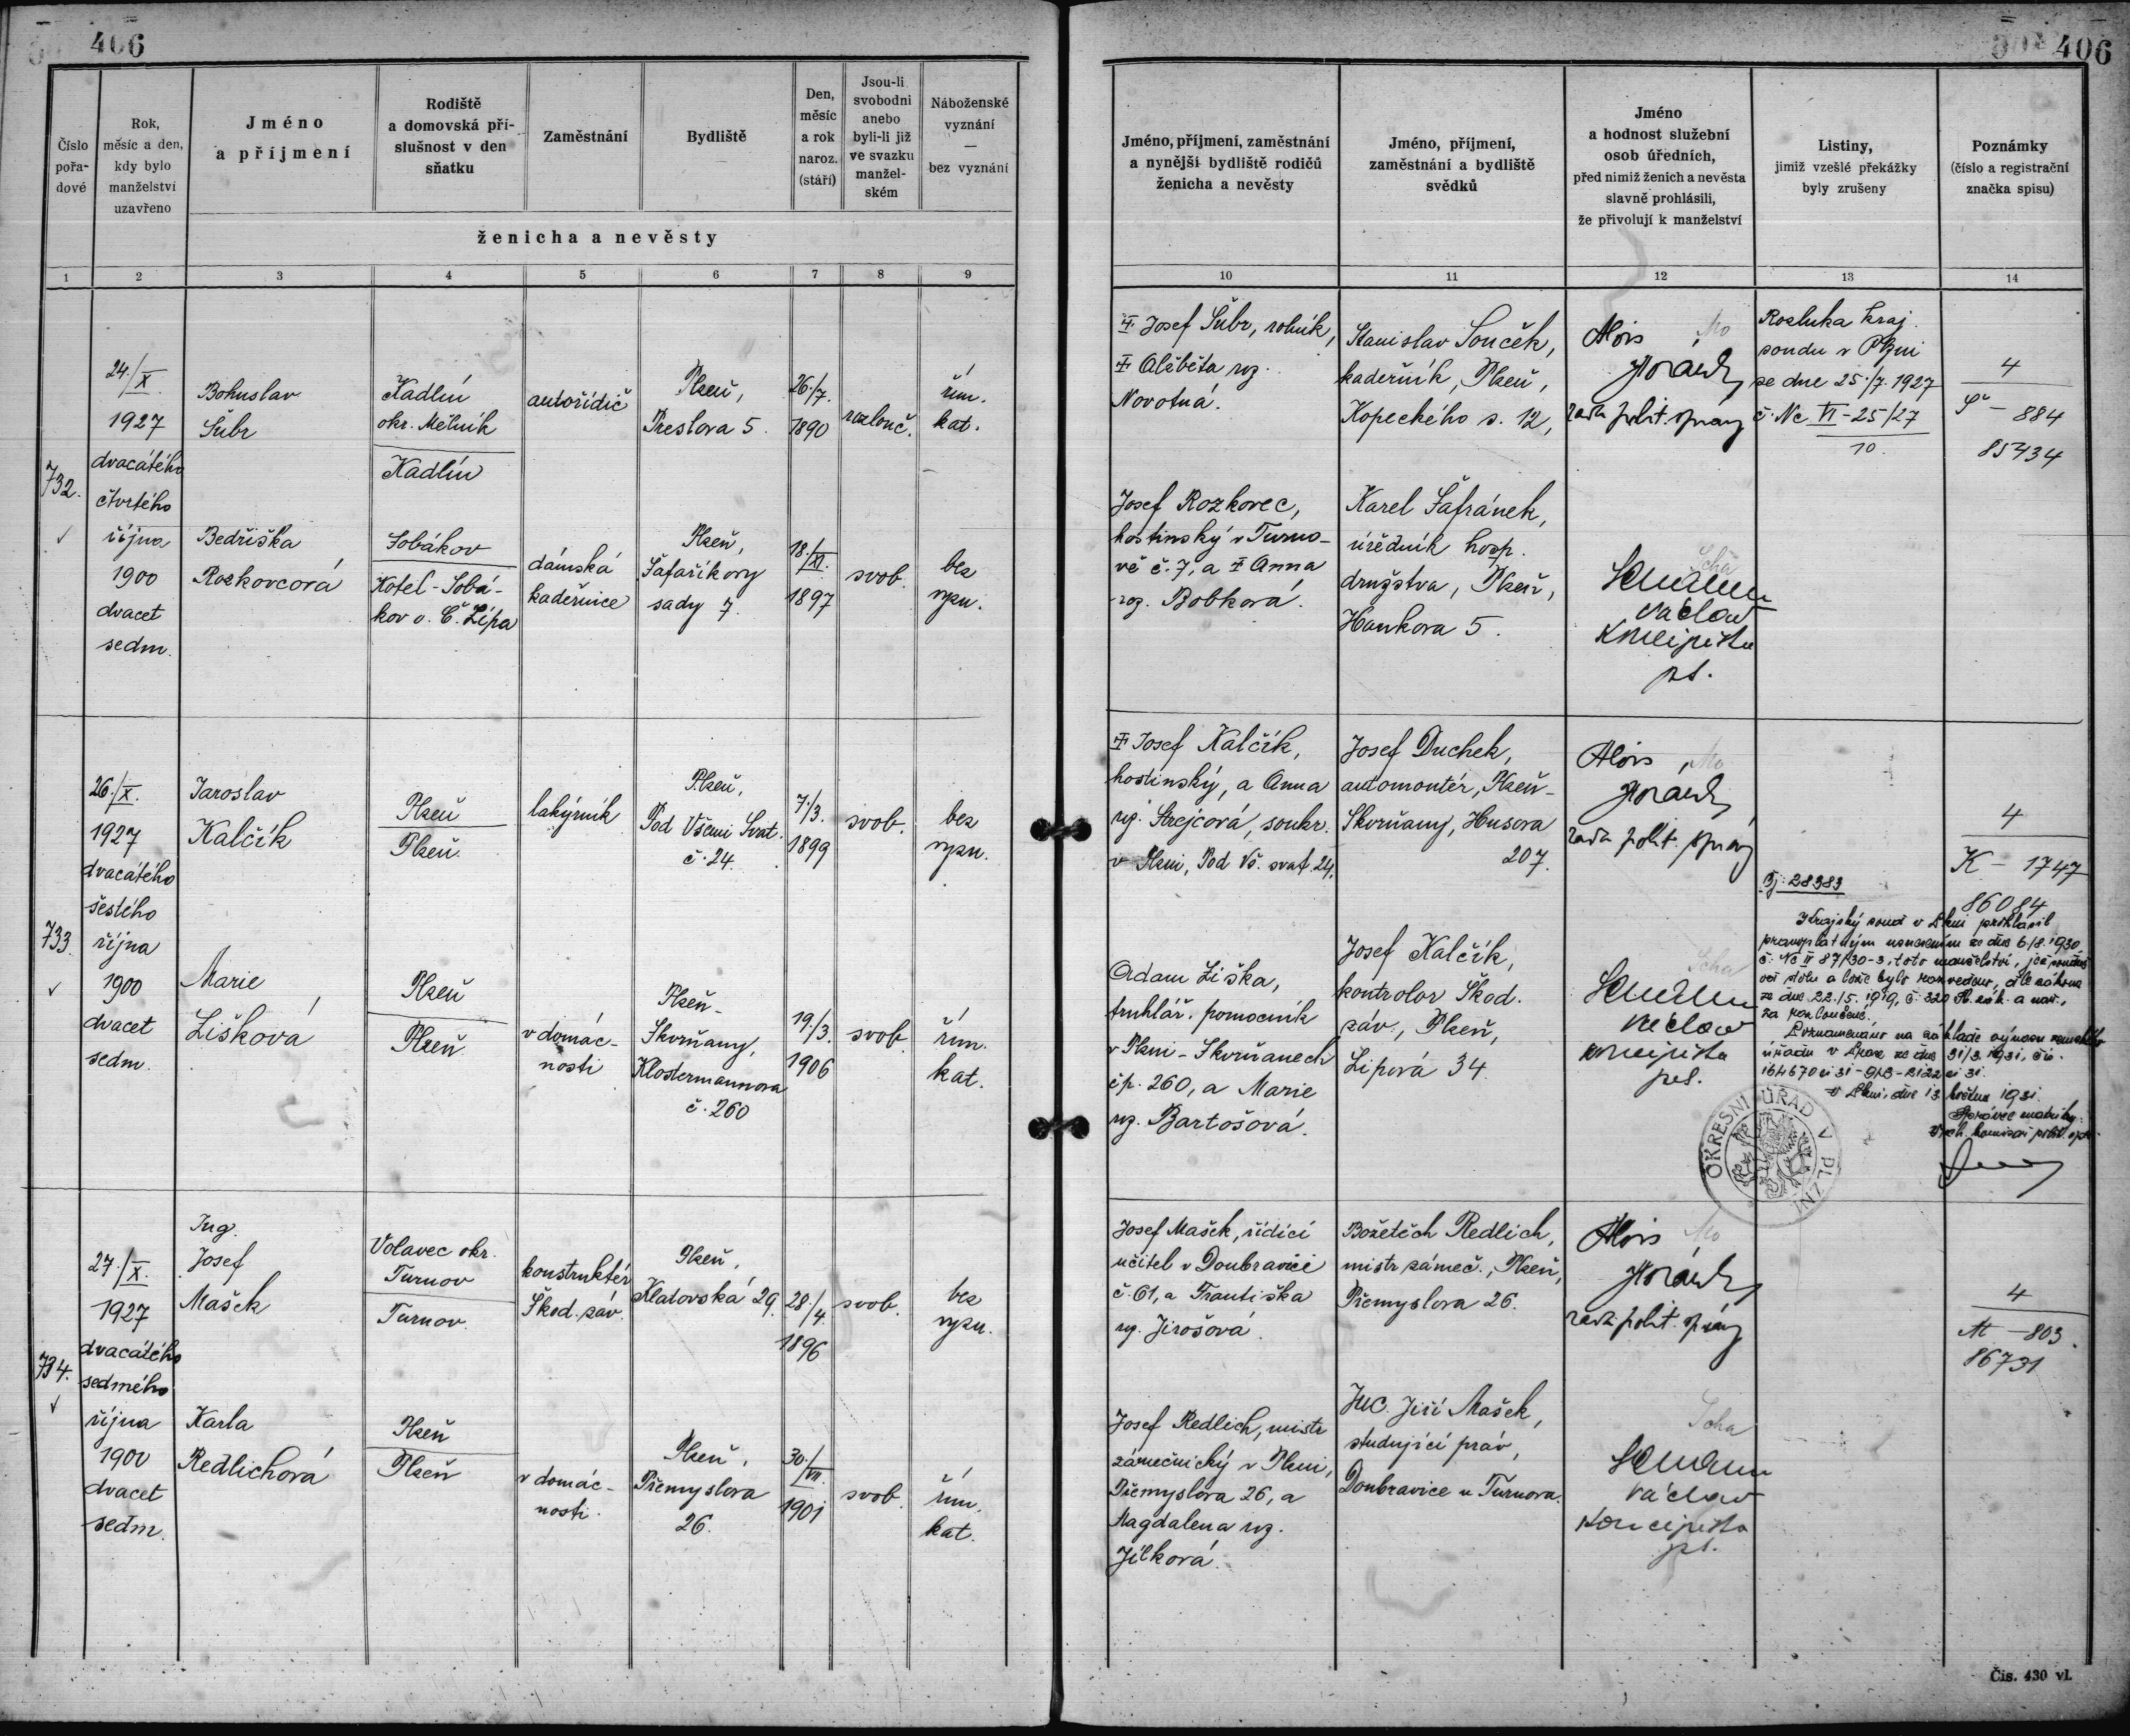 406
406
Číslo pořa-dové
Rok, měsíc a den, kdy bylo manželství uzavřeno
Jméno a příjmení
Rodiště a domovská pří-slušnost v den sňatku
Zaměstnání
Bydliště
Den, měsíc a rok naroz. (stáří)
Jsou-li svobodni anebo byli-li již ve svazku manžel-ském
Náboženské vyznání — bez vyznání
ženicha a nevěsty
Jméno, příjmení, zaměstnání a nynější bydliště rodičů ženicha a nevěsty
Jméno, příjmení, zaměstnání a bydliště svědků
Jméno a hodnost služební osob úředních, před nimiž ženich a nevěsta slavně prohlásili, že přivolují k manželství
Listiny, jimiž vzešlé překážky byly zrušeny
Poznámky (číslo a registrační značka spisu)
1 2 3 4 5 6 7 8 9 10 11 12 13 14
732.
24./X.
1927
dvacátého
čtvrtého
října
1900
dvacet
sedm.
Bohuslav
Šubr
Kadlín
okr. Mělník
Kadlín
autořidič
Plzeň,
Preslova 5.
26./7.
1890
rozlouč.
řím.
kat.
Bedřiška
Rozkovcová
Sobákov
Kotel-Sobá-
kov o. Č. Lípa
dámská
kadeřnice
Plzeň,
Šafaříkovy
sady 7.
18./XI.
1897
svob.
bez
vyzn.
Josef Šubr, rolník,
Alžběta roz.
Novotná.
Stanislav Souček,
kadeřník, Plzeň,
Kopeckého s. 12,
Alois
rada polit. správy
Rozluka kraj.
soudu v Plzni
ze dne 25./7. 1927
č. Nc VI-25/27
10.
4
Š - 884
85434
Josef Rozkovec,
hostinský v Turno-
vě č. 7, a Anna
roz. Bobková.
Karel Šafránek,
úředník hosp.
družstva, Plzeň,
Hankova 5.
Václav
koncipista
733.
26./X.
1927
dvacátého
šestého
října
1900
dvacet
sedm.
Jaroslav
Kalčík
Plzeň
Plzeň.
lakýrník
Plzeň,
Pod Všemi Svat.
č. 24.
7./3.
1899
svob.
bez
vyzn.
Marie
Lišková
Plzeň
Plzeň
v domác-
nosti
Plzeň-
Skvrňany,
Klostermannova
č. 260
19./3.
1906
svob.
řím.
kat.
Josef Kalčík,
hostinský, a Anna
roz. Strejcová, soukr.
v Plzni, Pod Vš. svat. 24.
Josef Duchek,
automontér, Plzeň-
Skvrňany, Husova
207.
Alois
rada polit. správy
4
K - 1747
86084
Adam Liška,
truhlář. pomocník
v Plzni-Skvrňanech
čp. 260, a Marie
roz. Bartošová.
Josef Kalčík,
kontrolor Škod.
záv., Plzeň,
Lipová 34.
Václav
koncipista
28383
Krajský soud v Plzni prohlásil
pravoplatným usnesením ze dne 6./8. 1930
č. Nc II 87/30-3, toto manželství, jež
od stolu a lože bylo rozvedeno, dle zákona
ze dne 22./5. 1919, č. 320 Sb. zák. a nař.,
za rozloučené.
Poznamenáno na základě výnosu zemského
úřadu v Praze ze dne 31/3. 1931, čís.
V Plzni, dne 13. května 1931.
Správce matriky:
OKRESNÍ ÚŘAD V PLZNI
734.
27./X.
1927
dvacátého
sedmého
října
1900
dvacet
sedm.
Ing.
Josef
Mašek
Volavec okr.
Turnov
Turnov.
konstruktér
Škod. záv.
Plzeň,
Klatovská 29.
28./4.
1896
svob.
bez
vyzn.
Karla
Redlichová
Plzeň
Plzeň
v domác-
nosti.
Plzeň,
Přemyslova
26.
30./VII.
1901
svob.
řím.
kat.
Josef Mašek, řídící
učitel v Doubravici
č. 61, a Františka
roz. Jirošová.
Božetěch Redlich,
mistr zámeč., Plzeň,
Přemyslova 26.
Alois
rada polit. správy
4
M - 803.
86731
Josef Redlich, mistr
zámečnický v Plzni,
Přemyslova 26, a
Magdalena roz.
Jílková.
JUC. Jiří Mašek,
studující práv,
Doubravice u Turnova.
Václav
koncipista
Čís. 430 vl.